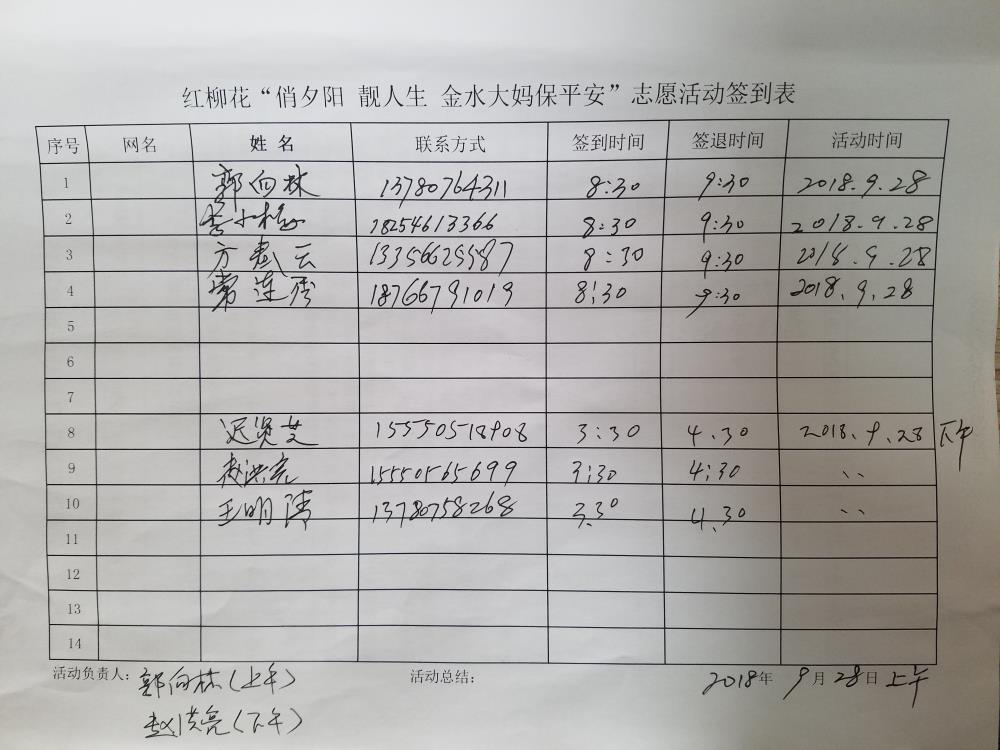 红柳花“俏夕阳 靓人生 金水大妈保平安”志愿活动签到表
序号 网名 姓名 联系方式 签到时间 签退时间 活动时间
1 郭向林 13780764311 8:30 9:30 2018.9.28
2 李小 18254613366 8:30 9:30 2018.9.28
3 方 云 13356625587 8:30 9:30 2018.9.28
4 常连秀 18766791019 8:30 9:30 2018.9.28
5
6
7
8 迟贤芝 15550518908 3:30 4.30 2018.9.28 下午
9 赵洪亮 15550565699 3:30 4:30 、、
10 王明清 13780758268 3.30 4.30 、、
11
12
13
14
活动负责人: 郭向林(上午) 活动总结: 2018年 9月28日 上午
赵洪亮(下午)